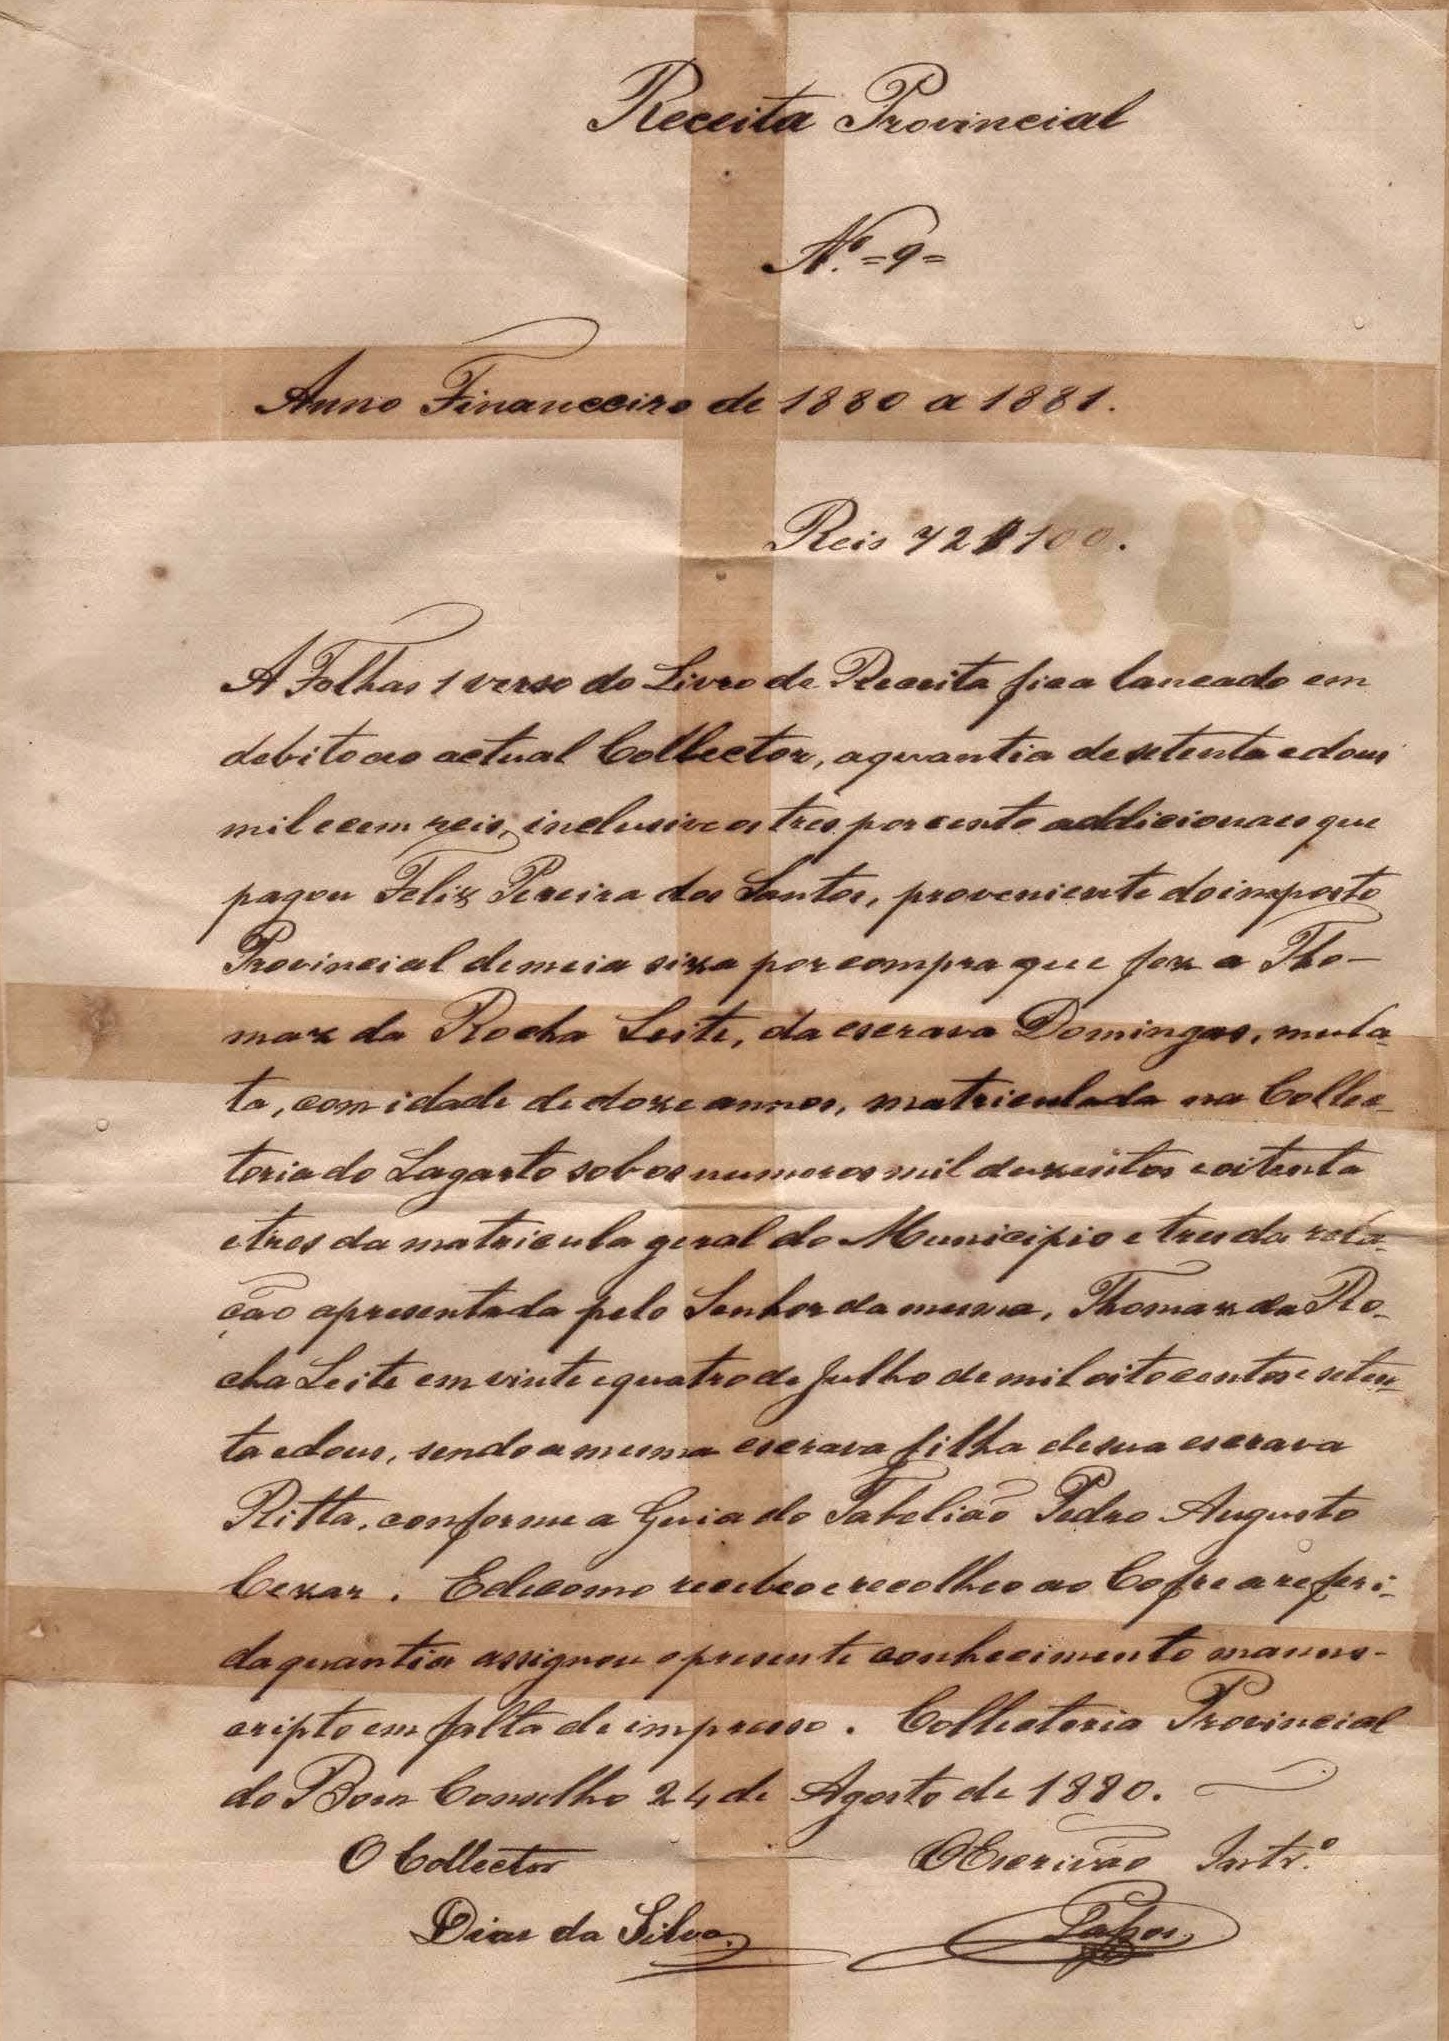 Receita Provincial
Nº. =9=
Anno Financeiro de 1880 a 1881.
Reis 72$100.
A Folhas 1 verso do Livro de Receita fica lancado em
debito ao actual Collector, a quantia de setenta e dous
mil e cem reis, inclusive os tres por cento addicionaes que
pagou Felix Pereira dos Santos, proveniente do imposto
Provincial de meia siza por compra que fez a Tho-
maz da Rocha Leite, da escrava Domingas, mula-
ta, com idade de doze annos, matriculada na Collec-
toria do Lagarto sob os numeros mil duzentos e oitenta
e tres da matricula geral do Municipio e tres da rela-
ção apresentada pelo Senhor da mesma, Thomaz da Ro-
cha Leite em vinte e quatro de Julho de mil oitocentos e seten-
ta e dous, sendo a mesma escrava filha de sua escrava
Ritta, conforme a Guia do Tabelião Pedro Augusto
Cezar. E de como recebeo e recolheo ao Cofre a referi-
da quantia assignou o presente conhecimento manus-
cripto em falta de impresso. Collectoria Provincial
do Bom Conselho 24 de Agosto de 1880.
O Collector O Escrivão Intr.º
Dias da Silva.